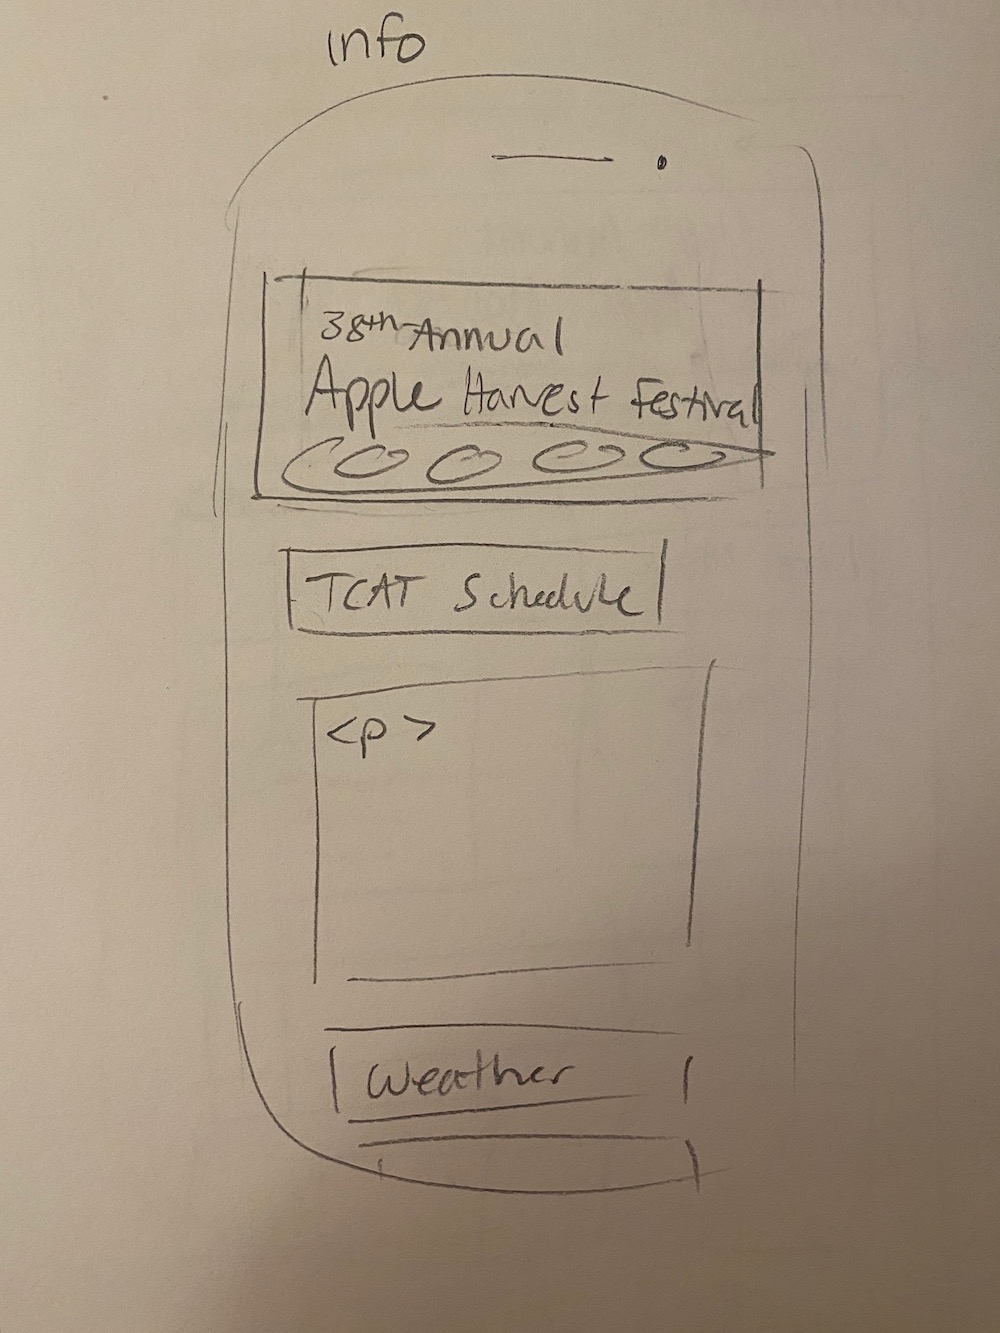 info
38th Annual
Apple Harvest Festival
TCAT Schedule
<p>
Weather